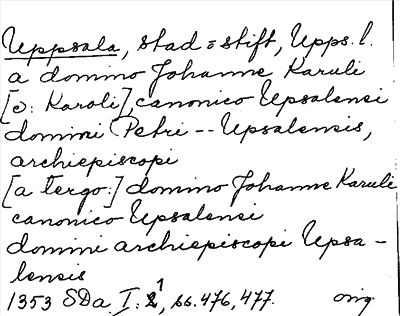 Uppsala, stad o stift, Upps. l.
a domino Johanne Karuli
[o: Karoli], canonico Upsalensi
domini Petri -- Upsalensis,
archiepiscopi
[a tergo:] domino Johanne Karuli
canonico Upsalensi
domini archiepiscopi Upsa-
lensis
1353 SDa I:1, ss. 476, 477. orig